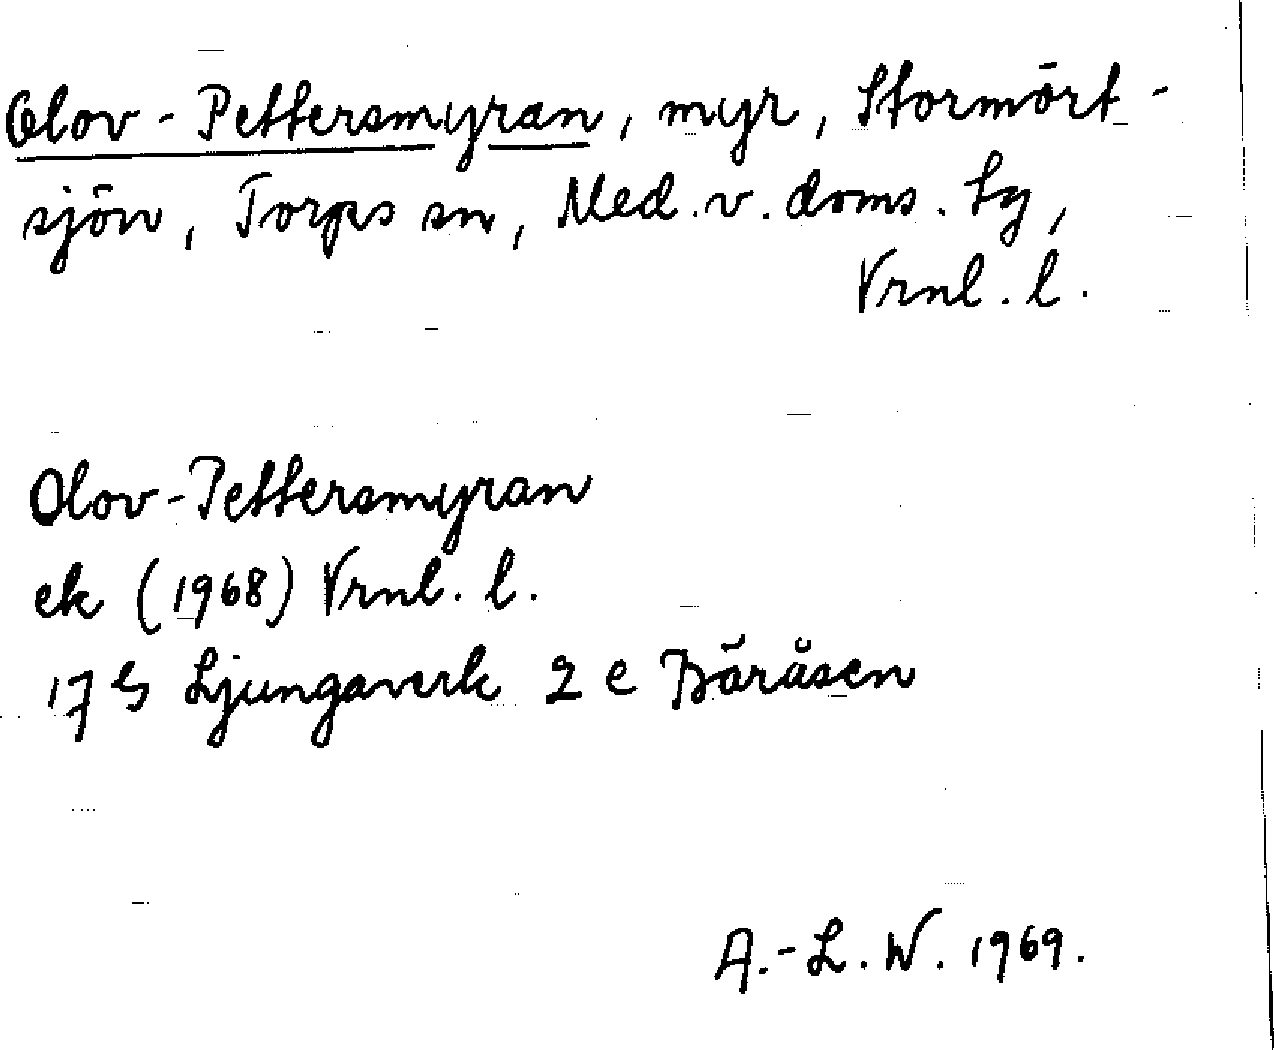 Olov-Pettersmyran, myr, Stormört-
sjön, Torps sn, Med. v. doms. tg,
Vrnl. l.
Olov-Pettersmyran
ek (1968) Vrnl. l.
17 G Ljungaverk 2 e Böråsen
A.-L. W. 1969.